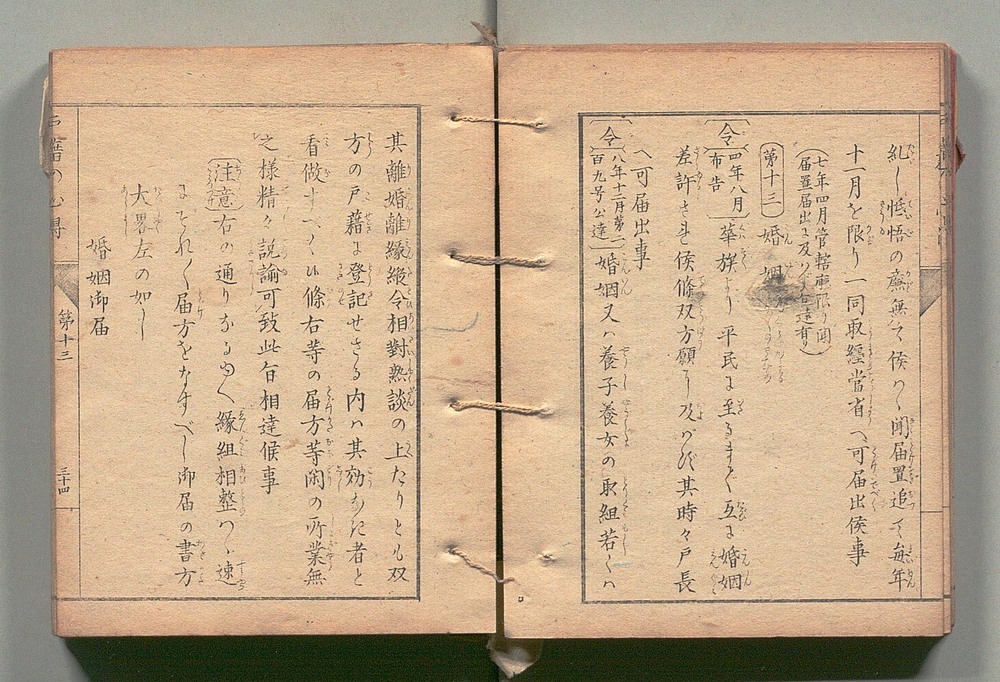 糺し牴牾の廉無之候ハヽ聞届置追て毎年
十一月を限り一同取經當省ヘ可届出候事
七年四月管轄庫限り聞
届置届出に及ハす
第十三 婚姻
令 四年八月布告 華族より平民に至るまて互に婚姻
差許され候條双方願に及ハす其時々戸長
ヘ可届出事
令 八年十二月第二百九号公達 婚姻又ハ養子養女の取組若くハ
其離婚離縁縦令相對熟談の上たりとも双
方の戸籍に登記せさる内ハ其効なき者と
看做すヘく候條右等の届方等閑の所業無
之樣精々説諭可致此旨相達候事
注意 右の通りなるゆゑ縁組相整ハヽ速
にそれ〳〵届方をなすべし御届の書方
大畧左の如し
婚姻御届
第十三
三十四